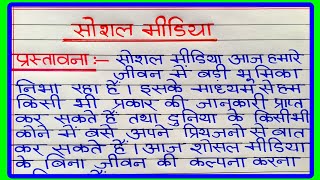 सोशल मीडिया
प्रस्तावना :- सोशल मीडिया आज हमारे
जीवन में बड़ी भूमिका
निभा रहा है। इसके माध्यम से हम
किसी भी प्रकार की जानकारी प्राप्त
कर सकते हैं तथा दुनिया के किसी भी
कोने में बसे अपने प्रियजनो से बात
कर सकते हैं। आज शोसल मीडिया
के बिना जीवन की कल्पना करना